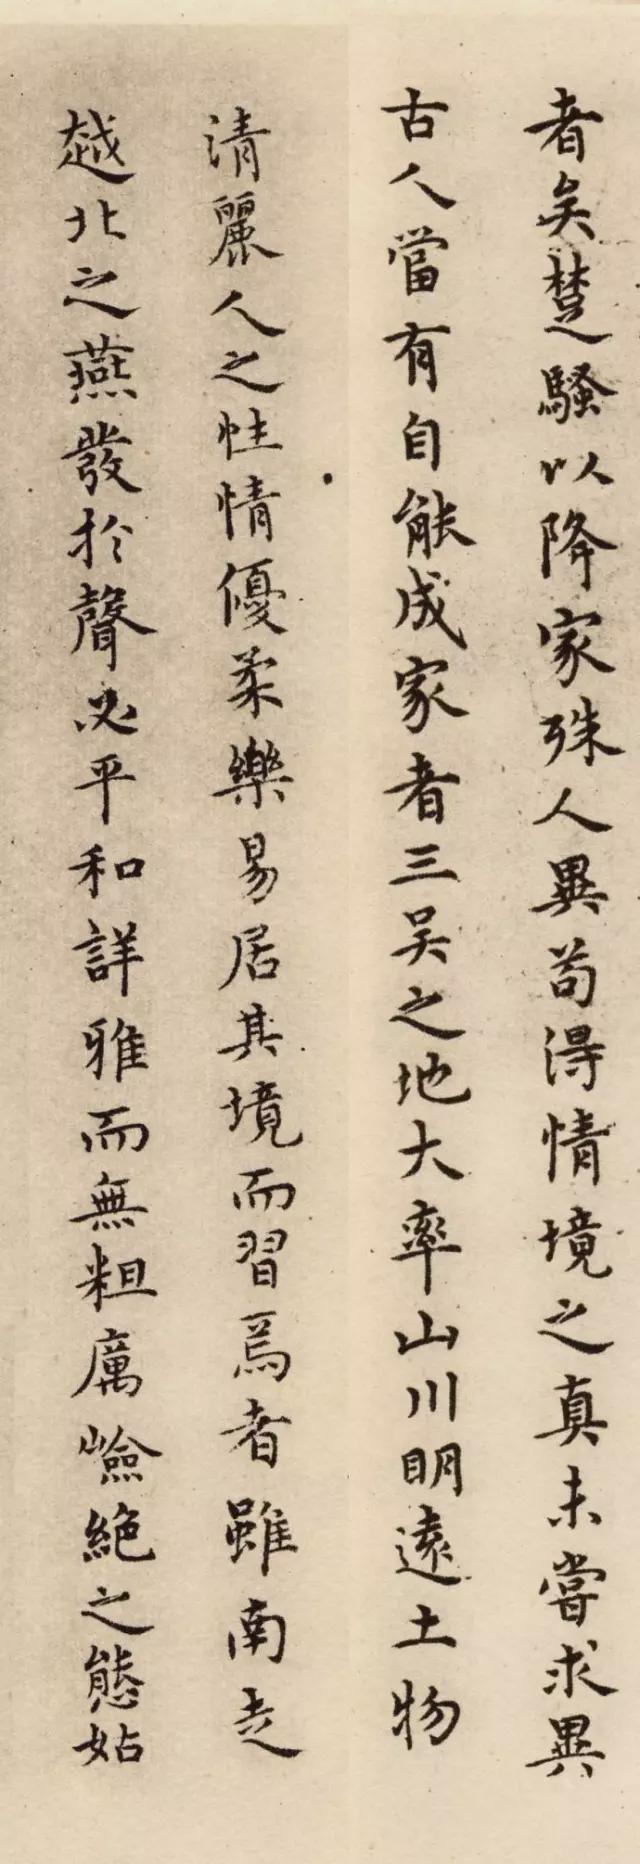 者矣楚騷以降家殊人異苟得情境之真未嘗求異
古人當有自能成家者三吴之地大率山川明遠土物
清麗人之性情優柔樂易居其境而習焉者雖南走
越北之燕發於聲必平和詳雅而無粗厲嶮絕之態姑